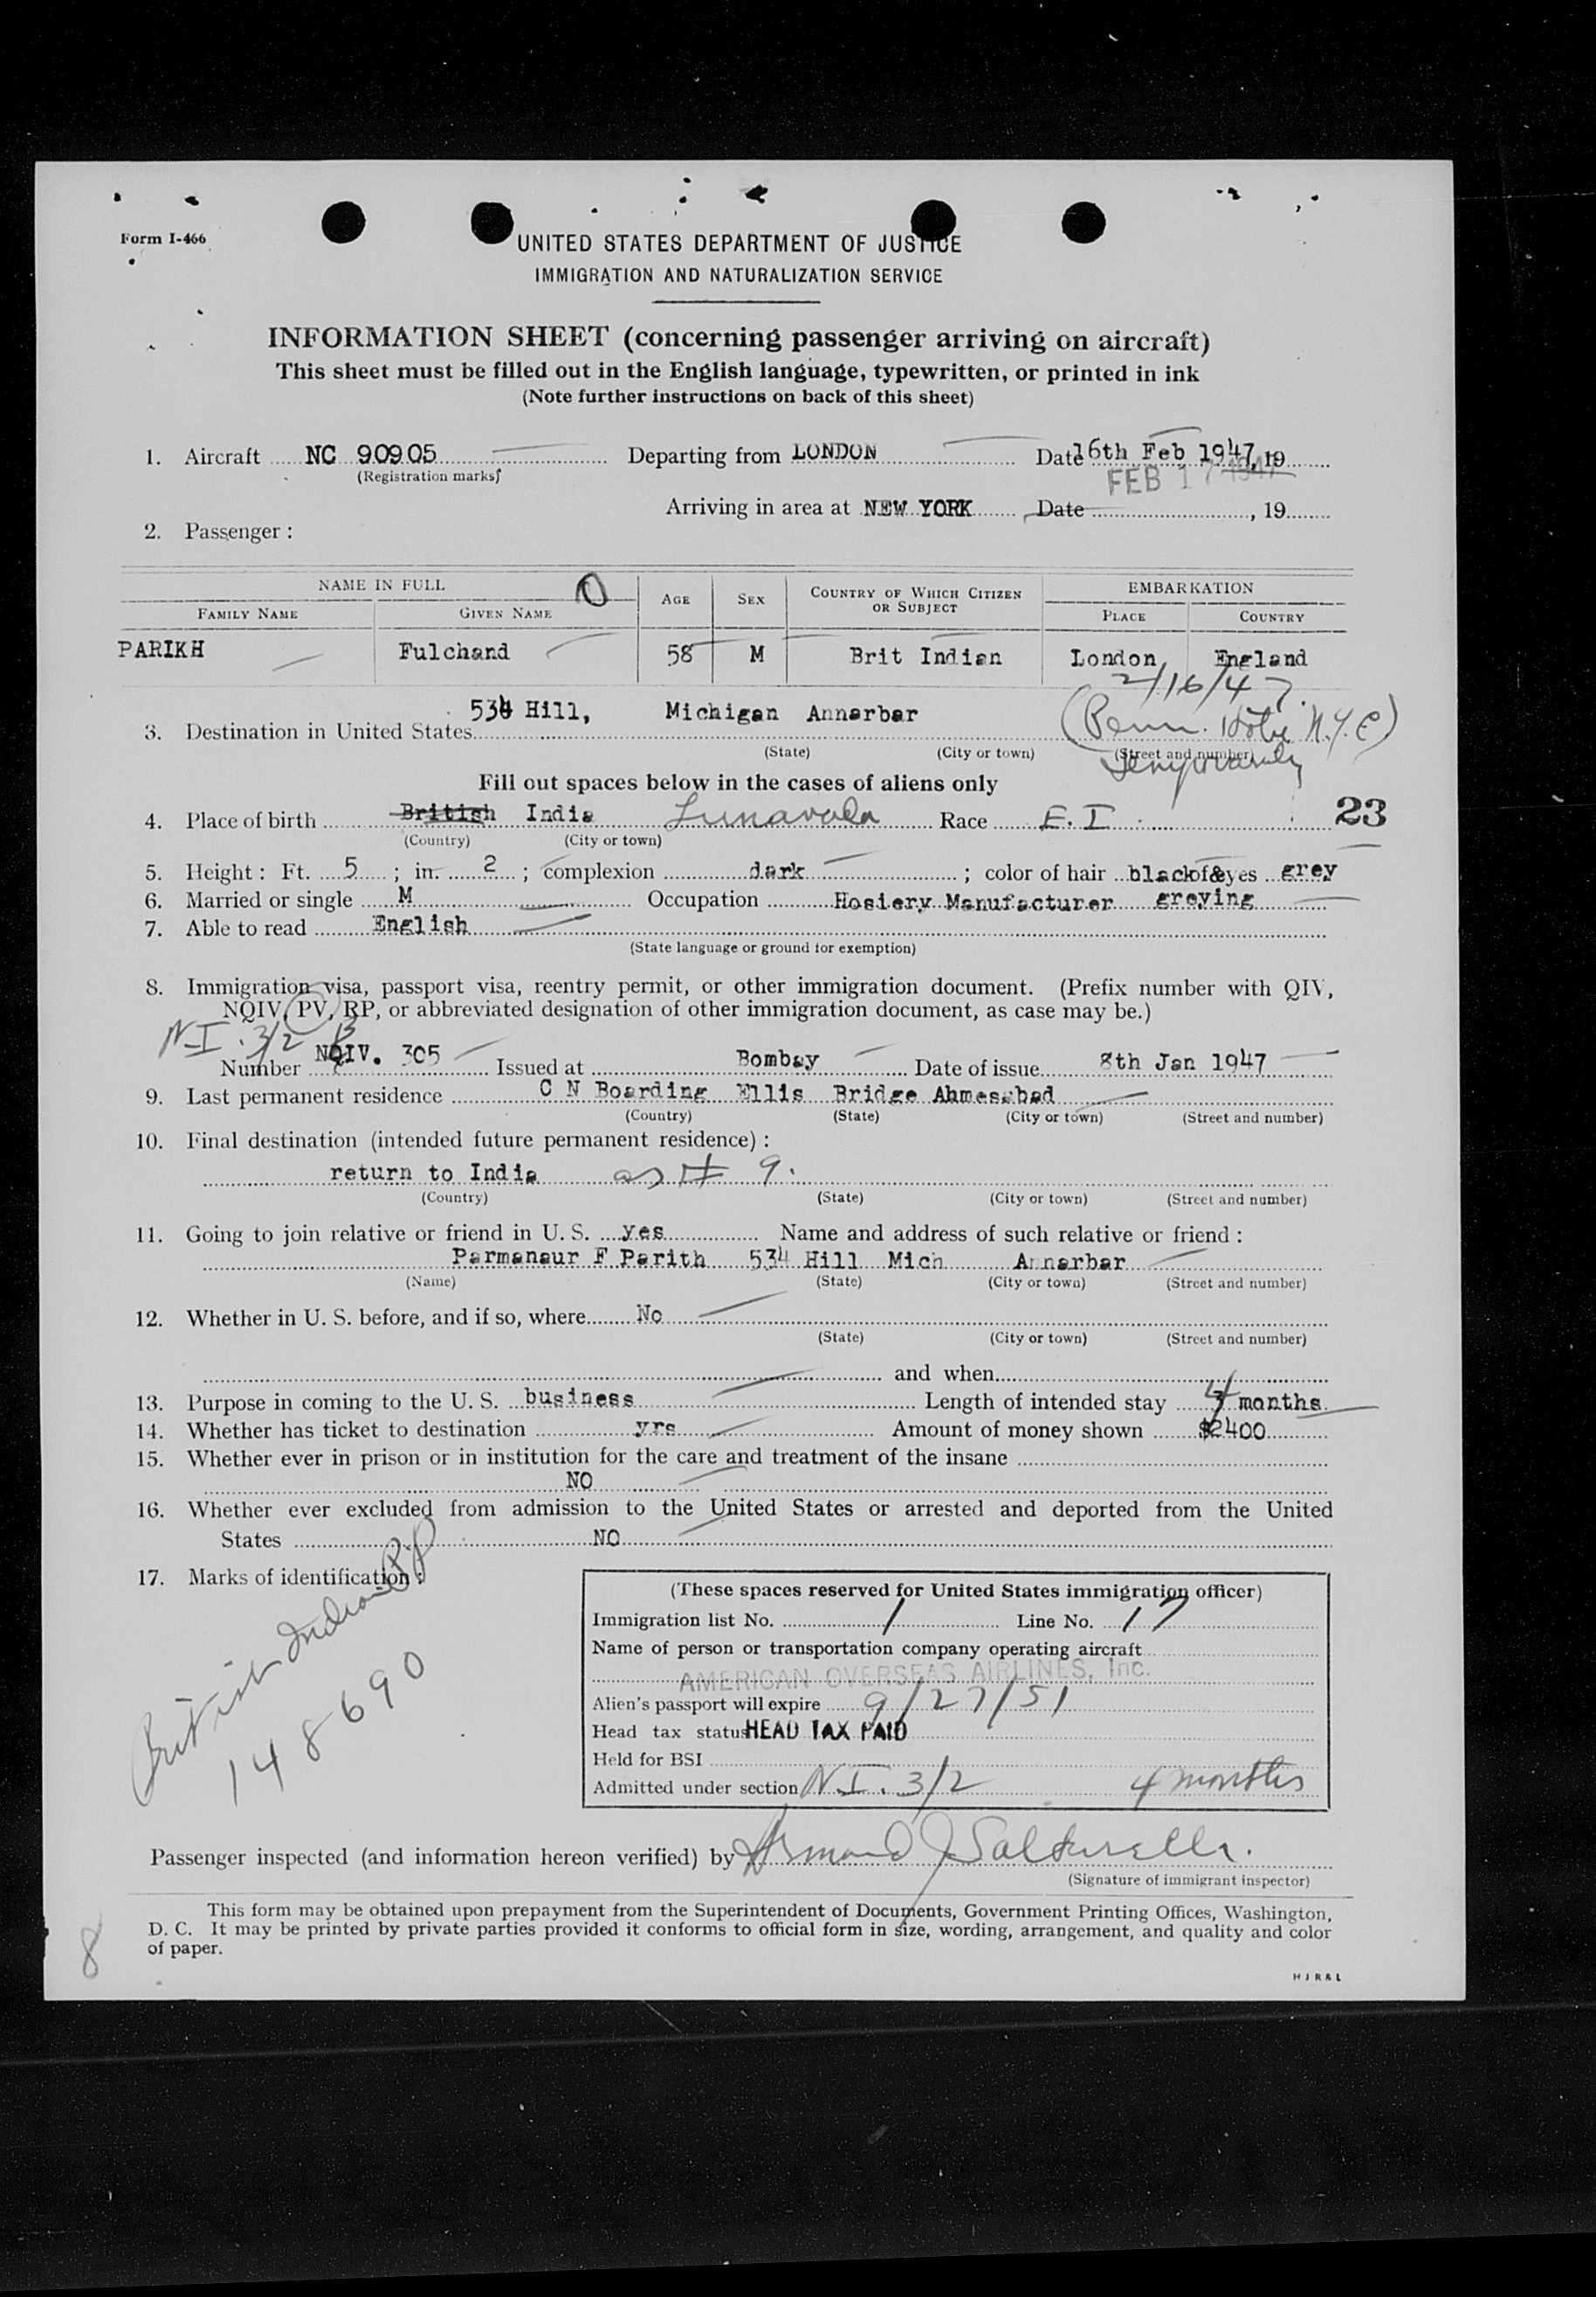 Form I-466
UNITED STATES DEPARTMENT OF JUSTICE
IMMIGRATION AND NATURALIZATION SERVICE
INFORMATION SHEET (concerning passenger arriving on aircraft)
This sheet must be filled out in the English language, typewritten, or printed in ink
(Note further instructions on back of this sheet)
1. Aircraft NC 90905 Departing from LONDON Date 16th Feb 1947, 19
(Registration marks) FEB 17 1947
Arriving in area at NEW YORK Date , 19
2. Passenger :
NAME IN FULL 0 AGE SEX COUNTRY OF WHICH CITIZEN OR SUBJECT EMBARKATION
FAMILY NAME GIVEN NAME PLACE COUNTRY
PARIKH Fulchand 58 M Brit Indian London England
2/16/47.
534 Hill, Michigan Annarbar (Penn. Hotel N.Y.C)
3. Destination in United States
(State) (City or town) (Street and number)
Temporarily
Fill out spaces below in the cases of aliens only
4. Place of birth British India Lunavada Race E.I. 23
(Country) (City or town)
5. Height : Ft. 5 ; in. 2 ; complexion dark ; color of hair black of & eyes grey
6. Married or single M Occupation Hosiery Manufacturer greying
7. Able to read English
(State language or ground for exemption)
8. Immigration visa, passport visa, reentry permit, or other immigration document. (Prefix number with QIV,
NQIV, PV, RP, or abbreviated designation of other immigration document, as case may be.)
N.I. 3/2
Number NQIV. 305 Issued at Bombay Date of issue 8th Jan 1947
9. Last permanent residence C N Boarding Ellis Bridge Ahmesabad
(Country) (State) (City or town) (Street and number)
10. Final destination (intended future permanent residence) :
return to India as # 9.
(Country) (State) (City or town) (Street and number)
11. Going to join relative or friend in U. S. yes Name and address of such relative or friend :
Parmanaur F Parith 534 Hill Mich Annarbar
(Name) (State) (City or town) (Street and number)
12. Whether in U. S. before, and if so, where No
(State) (City or town) (Street and number)
and when
13. Purpose in coming to the U. S. business Length of intended stay 4 months
14. Whether has ticket to destination yrs Amount of money shown $2400
15. Whether ever in prison or in institution for the care and treatment of the insane
NO
16. Whether ever excluded from admission to the United States or arrested and deported from the United
States NO
17. Marks of identification :
British Indian PP
148690
(These spaces reserved for United States immigration officer)
Immigration list No. 1 Line No. 17
Name of person or transportation company operating aircraft
AMERICAN OVERSEAS AIRLINES, Inc.
Alien's passport will expire 9/27/51
Head tax status HEAD TAX PAID
Held for BSI
Admitted under section N.I. 3/2 4 months
Passenger inspected (and information hereon verified) by Armand J
(Signature of immigrant inspector)
This form may be obtained upon prepayment from the Superintendent of Documents, Government Printing Offices, Washington,
D. C. It may be printed by private parties provided it conforms to official form in size, wording, arrangement, and quality and color
of paper.
8
H J R & L